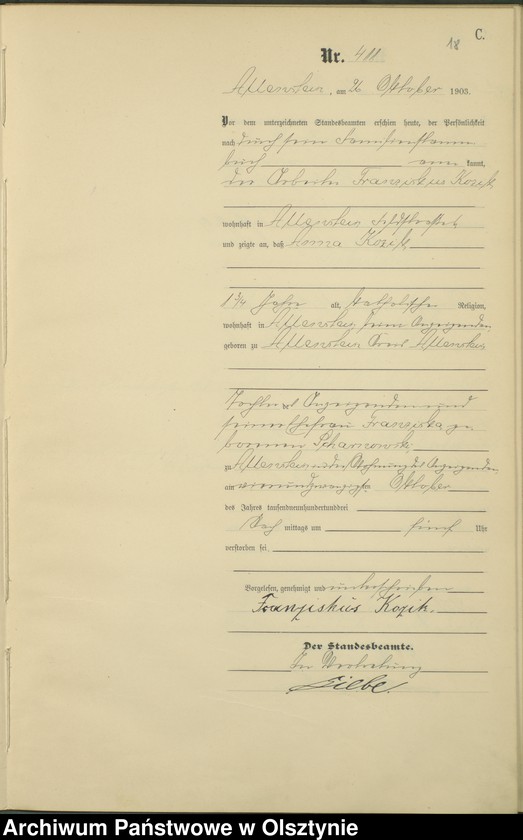 C.
18
Nr. 488
Allenstein, am 26 Oktober 1903.
Vor dem unterzeichneten Standesbeamten erschien heute, der Persönlichkeit
nach durch sein Familienstamm
buch anerkannt,
der Arbeiter Franziskus Kozik
wohnhaft in Allenstein
und zeigte an, daß Anna Kozik
1 3/4 Jahre alt, katholischer Religion,
wohnhaft in Allenstein beim Anzeigenden
geboren zu Allenstein Kreis Allenstein
Tochter des Anzeigenden und
seiner Ehefrau Franziska ge
borenen
zu Allenstein in der Wohnung des Anzeigenden
am vierundzwanzigsten Oktober
des Jahres tausendneunhundertunddrei
Nach mittags um fünf Uhr
verstorben sei.
Vorgelesen, genehmigt und unterschrieben
Franziskus Kozik.
Der Standesbeamte.
In Vertretung
Archiwum Państwowe w Olsztynie